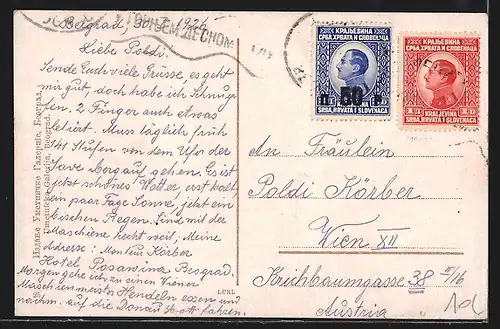 Belgrad, 1926
ГОВОРИ ДЕСНОМ
Liebe Poldi.
Sende Euch viele Grüsse, es geht
mir gut, doch habe ich Schnup-
fen. 2 Finger auch etwas
letirt. Muss täglich früh
141 Stufen von dem Ufer der
Save borgauf gehen. Es ist
jetzt schönes Wetter, erst kalt
ein paar Tage Sonne, jetzt ein
bischen Regen. Sind mit der
Maschiene recht weit, Meine
Adresse: Monteur Körber
Hotel Posawina Beograd.
Morgen gehe ich zu einen Wiener
Maschienmeister Hendeln essen und
nachm. auf die Donau Boott fahren.
Издање Уметничке Галерије, Београд.
Umetnička Galerija, Beograd.
LUKL
КРАЉЕВИНА
СРБА, ХРВАТА И СЛОВЕНАЦА
50
KRALJEVINA
SRBA, HRVATA I SLOVENACA
КРАЉЕВИНА
СРБА, ХРВАТА И СЛОВЕНАЦА
1 D
KRALJEVINA
SRBA, HRVATA I SLOVENACA
An Fräulein
Poldi Körber
Wien XII
Krichbaumgasse 38 2/16
Austria